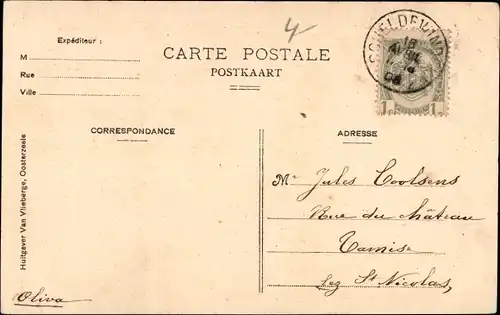 4
Expéditeur :
M
Rue
Ville
CARTE POSTALE
POSTKAART
SCHELDEWIND
18
08
1 1
CORRESPONDANCE
ADRESSE
Huitgever Van Vlieberge, Oosterzeele
M. Jules Coolsens
Rue du Château
Tamise
Lez St Nicolas,
Oliva